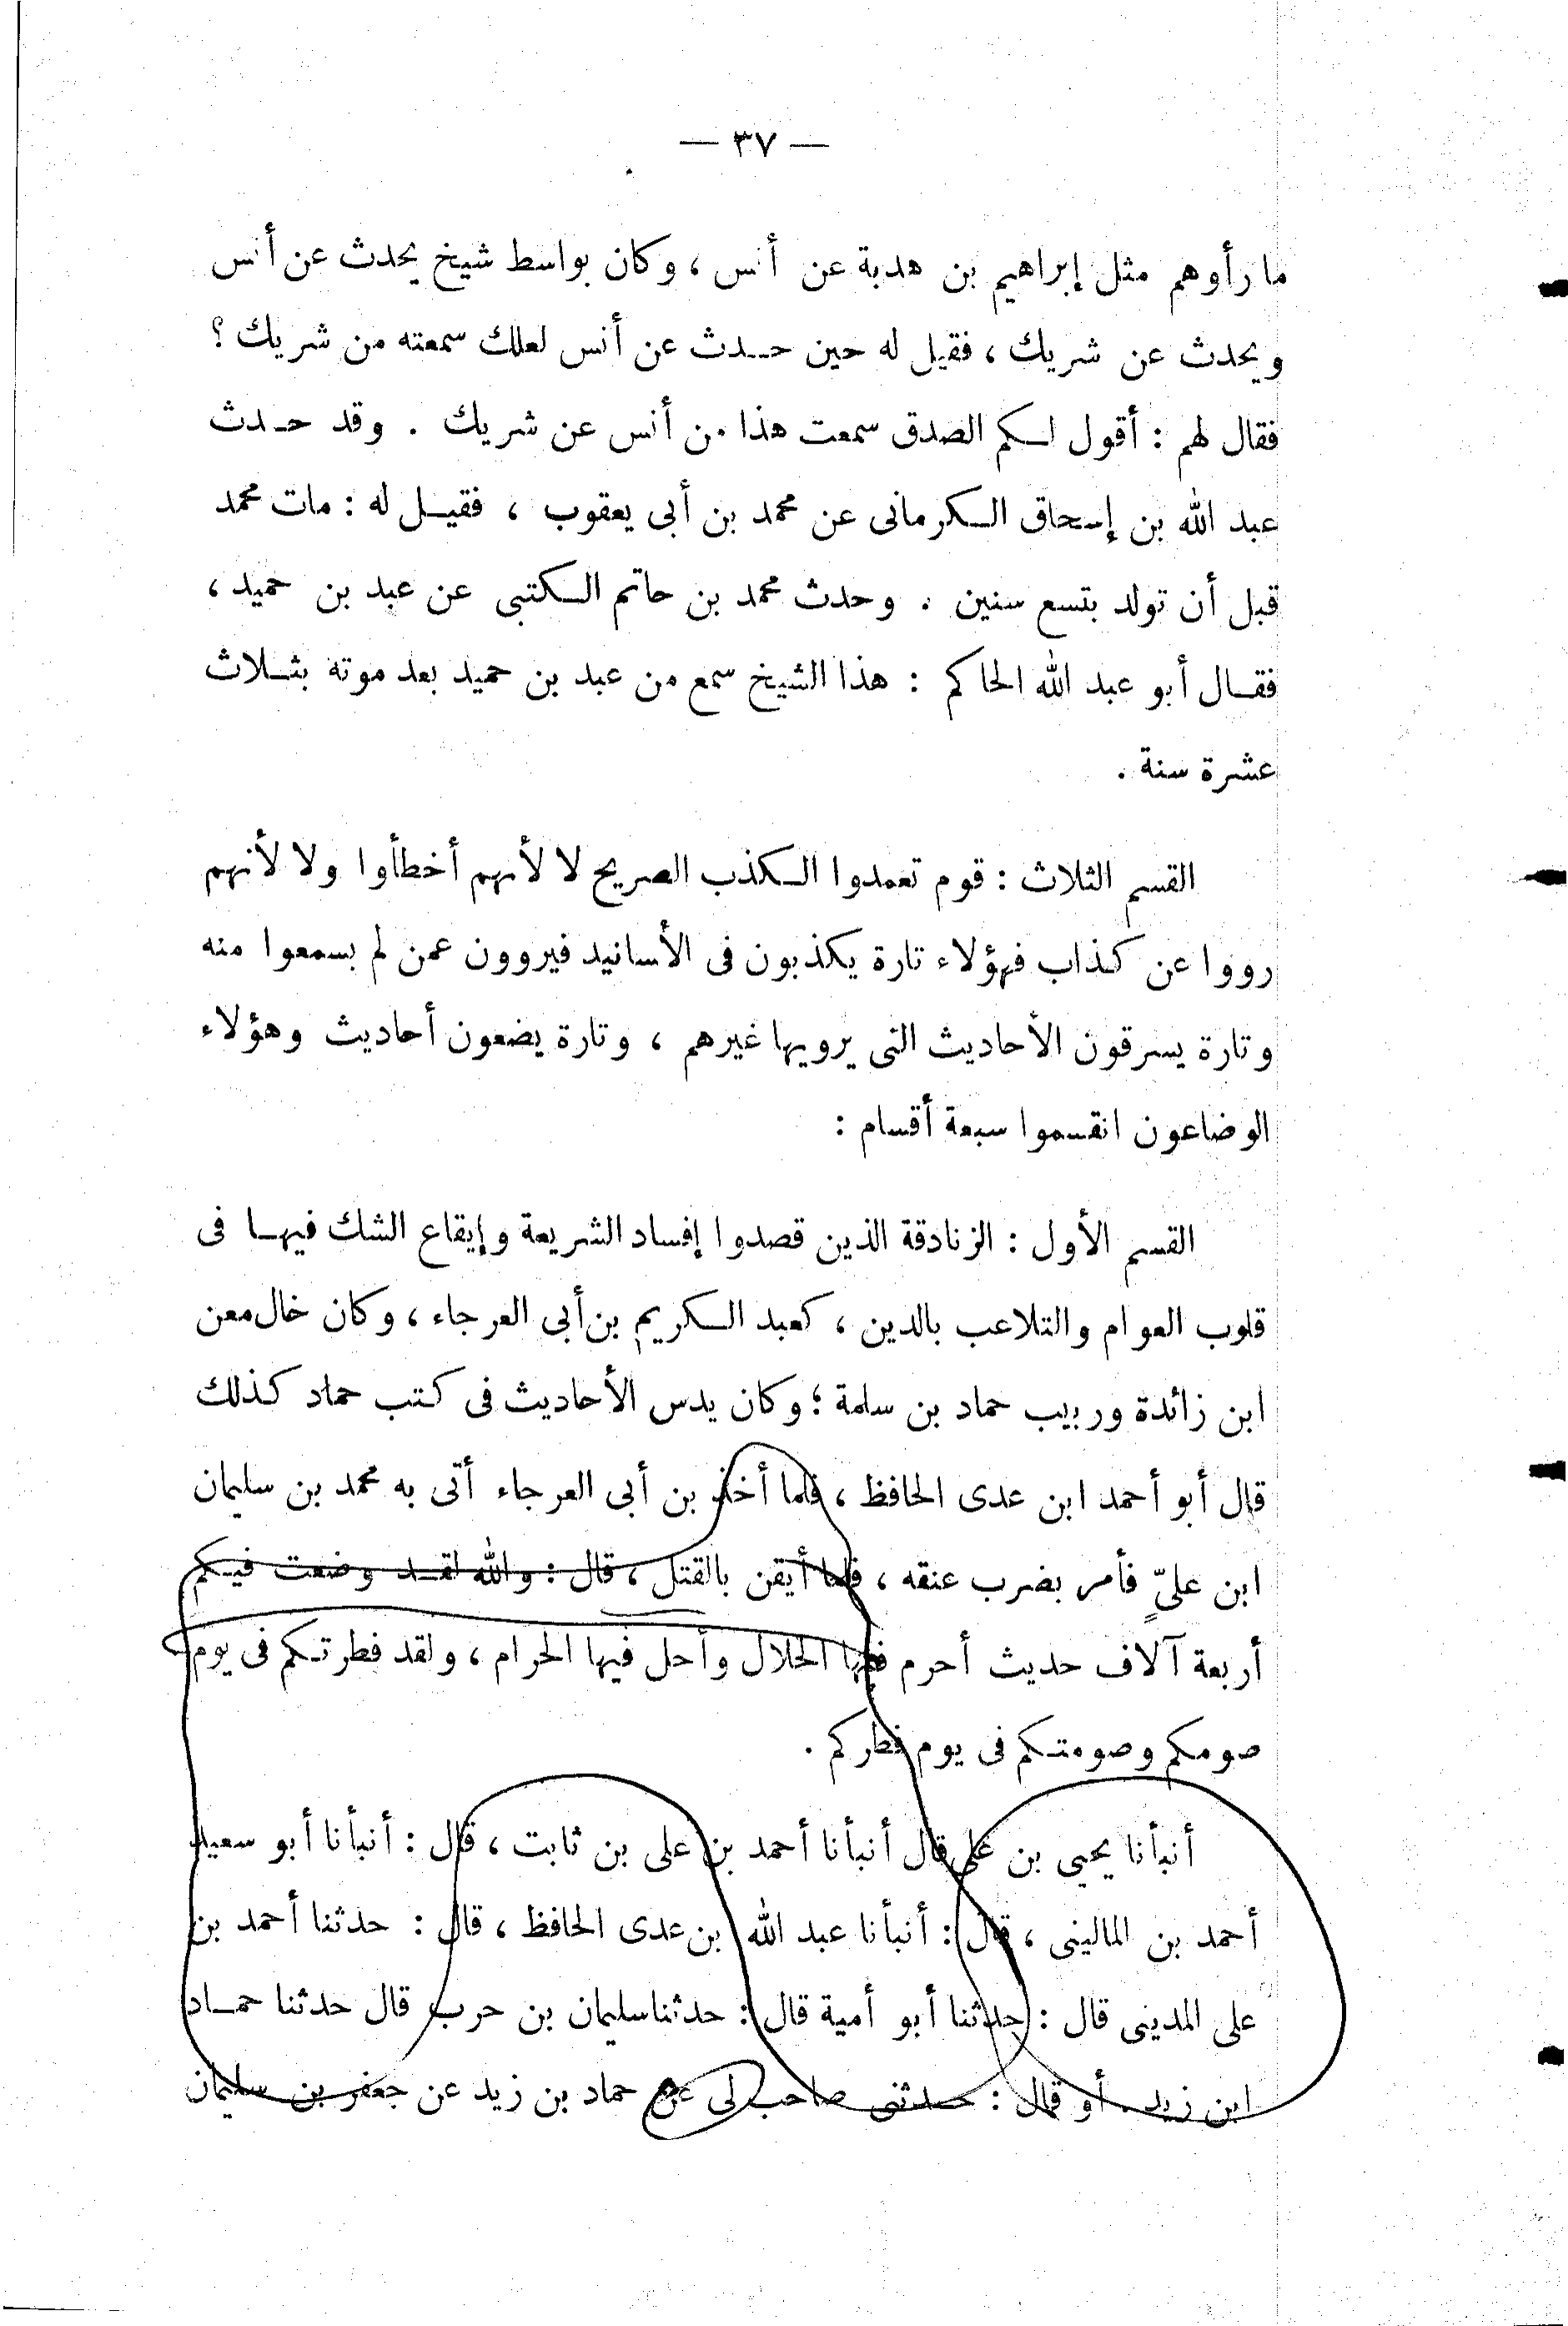 — ٣٧ —
ما رأوهم مثل إبراهيم بن هدبة عن أنس ، وكان بواسط شيخ يحدث عن أنس
ويحدث عن شريك ، فقيل له حين حدث عن أنس لعلك سمعته من شريك ؟
فقال لهم : أقول لكم الصدق سمعت هذا من أنس عن شريك . وقد حدث
عبد الله بن إسحاق الكرمانى عن محمد بن أبى يعقوب ، فقيل له : مات محمد
قبل أن تولد بتسع سنين . وحدث محمد بن حاتم الكتبى عن عبد بن حميد ،
فقال أبو عبد الله الحاكم : هذا الشيخ سمع من عبد بن حميد بعد موته بثلاث
عشرة سنة .
القسم الثلاث : قوم تعمدوا الكذب الصريح لا لأنهم أخطأوا ولا لأنهم
رووا عن كذاب فهؤلاء تارة يكذبون فى الأسانيد فيروون عمن لم يسمعوا منه
وتارة يسرقون الأحاديث التى يرويها غيرهم ، وتارة يضعون أحاديث وهؤلاء
الوضاعون انقسموا سبعة أقسام :
القسم الأول : الزنادقة الذين قصدوا إفساد الشريعة وإيقاع الشك فيها فى
قلوب العوام والتلاعب بالدين ، كعبد الكريم بن أبى العرجاء ، وكان خال معن
ابن زائدة وربيب حماد بن سلمة ؛ وكان يدس الأحاديث فى كتب حماد كذلك
قال أبو أحمد ابن عدى الحافظ ، فلما أخذ بن أبى العرجاء أتى به محمد بن سليمان
ابن علىّ فأمر بضرب عنقه ، فلما أيقن بالقتل ، قال : والله لقد وضعت فيكم
أربعة آلاف حديث أحرم فيها الحلال وأحل فيها الحرام ، ولقد فطرتكم فى يوم
صومكم وصومتكم فى يوم فطركم .
أنبأنا يحيى بن على قال أنبأنا أحمد بن على بن ثابت ، قال : أنبأنا أبو سعيد
أحمد بن المالينى ، قال : أنبأنا عبد الله بن عدى الحافظ ، قال : حدثنا أحمد بن
على المدينى قال : حدثنا أبو أمية قال : حدثنا سليمان بن حرب قال حدثنا حماد
ابن زيد . أو قال : حدثنى صاحب لى عن حماد بن زيد عن جعفر بن سليمان